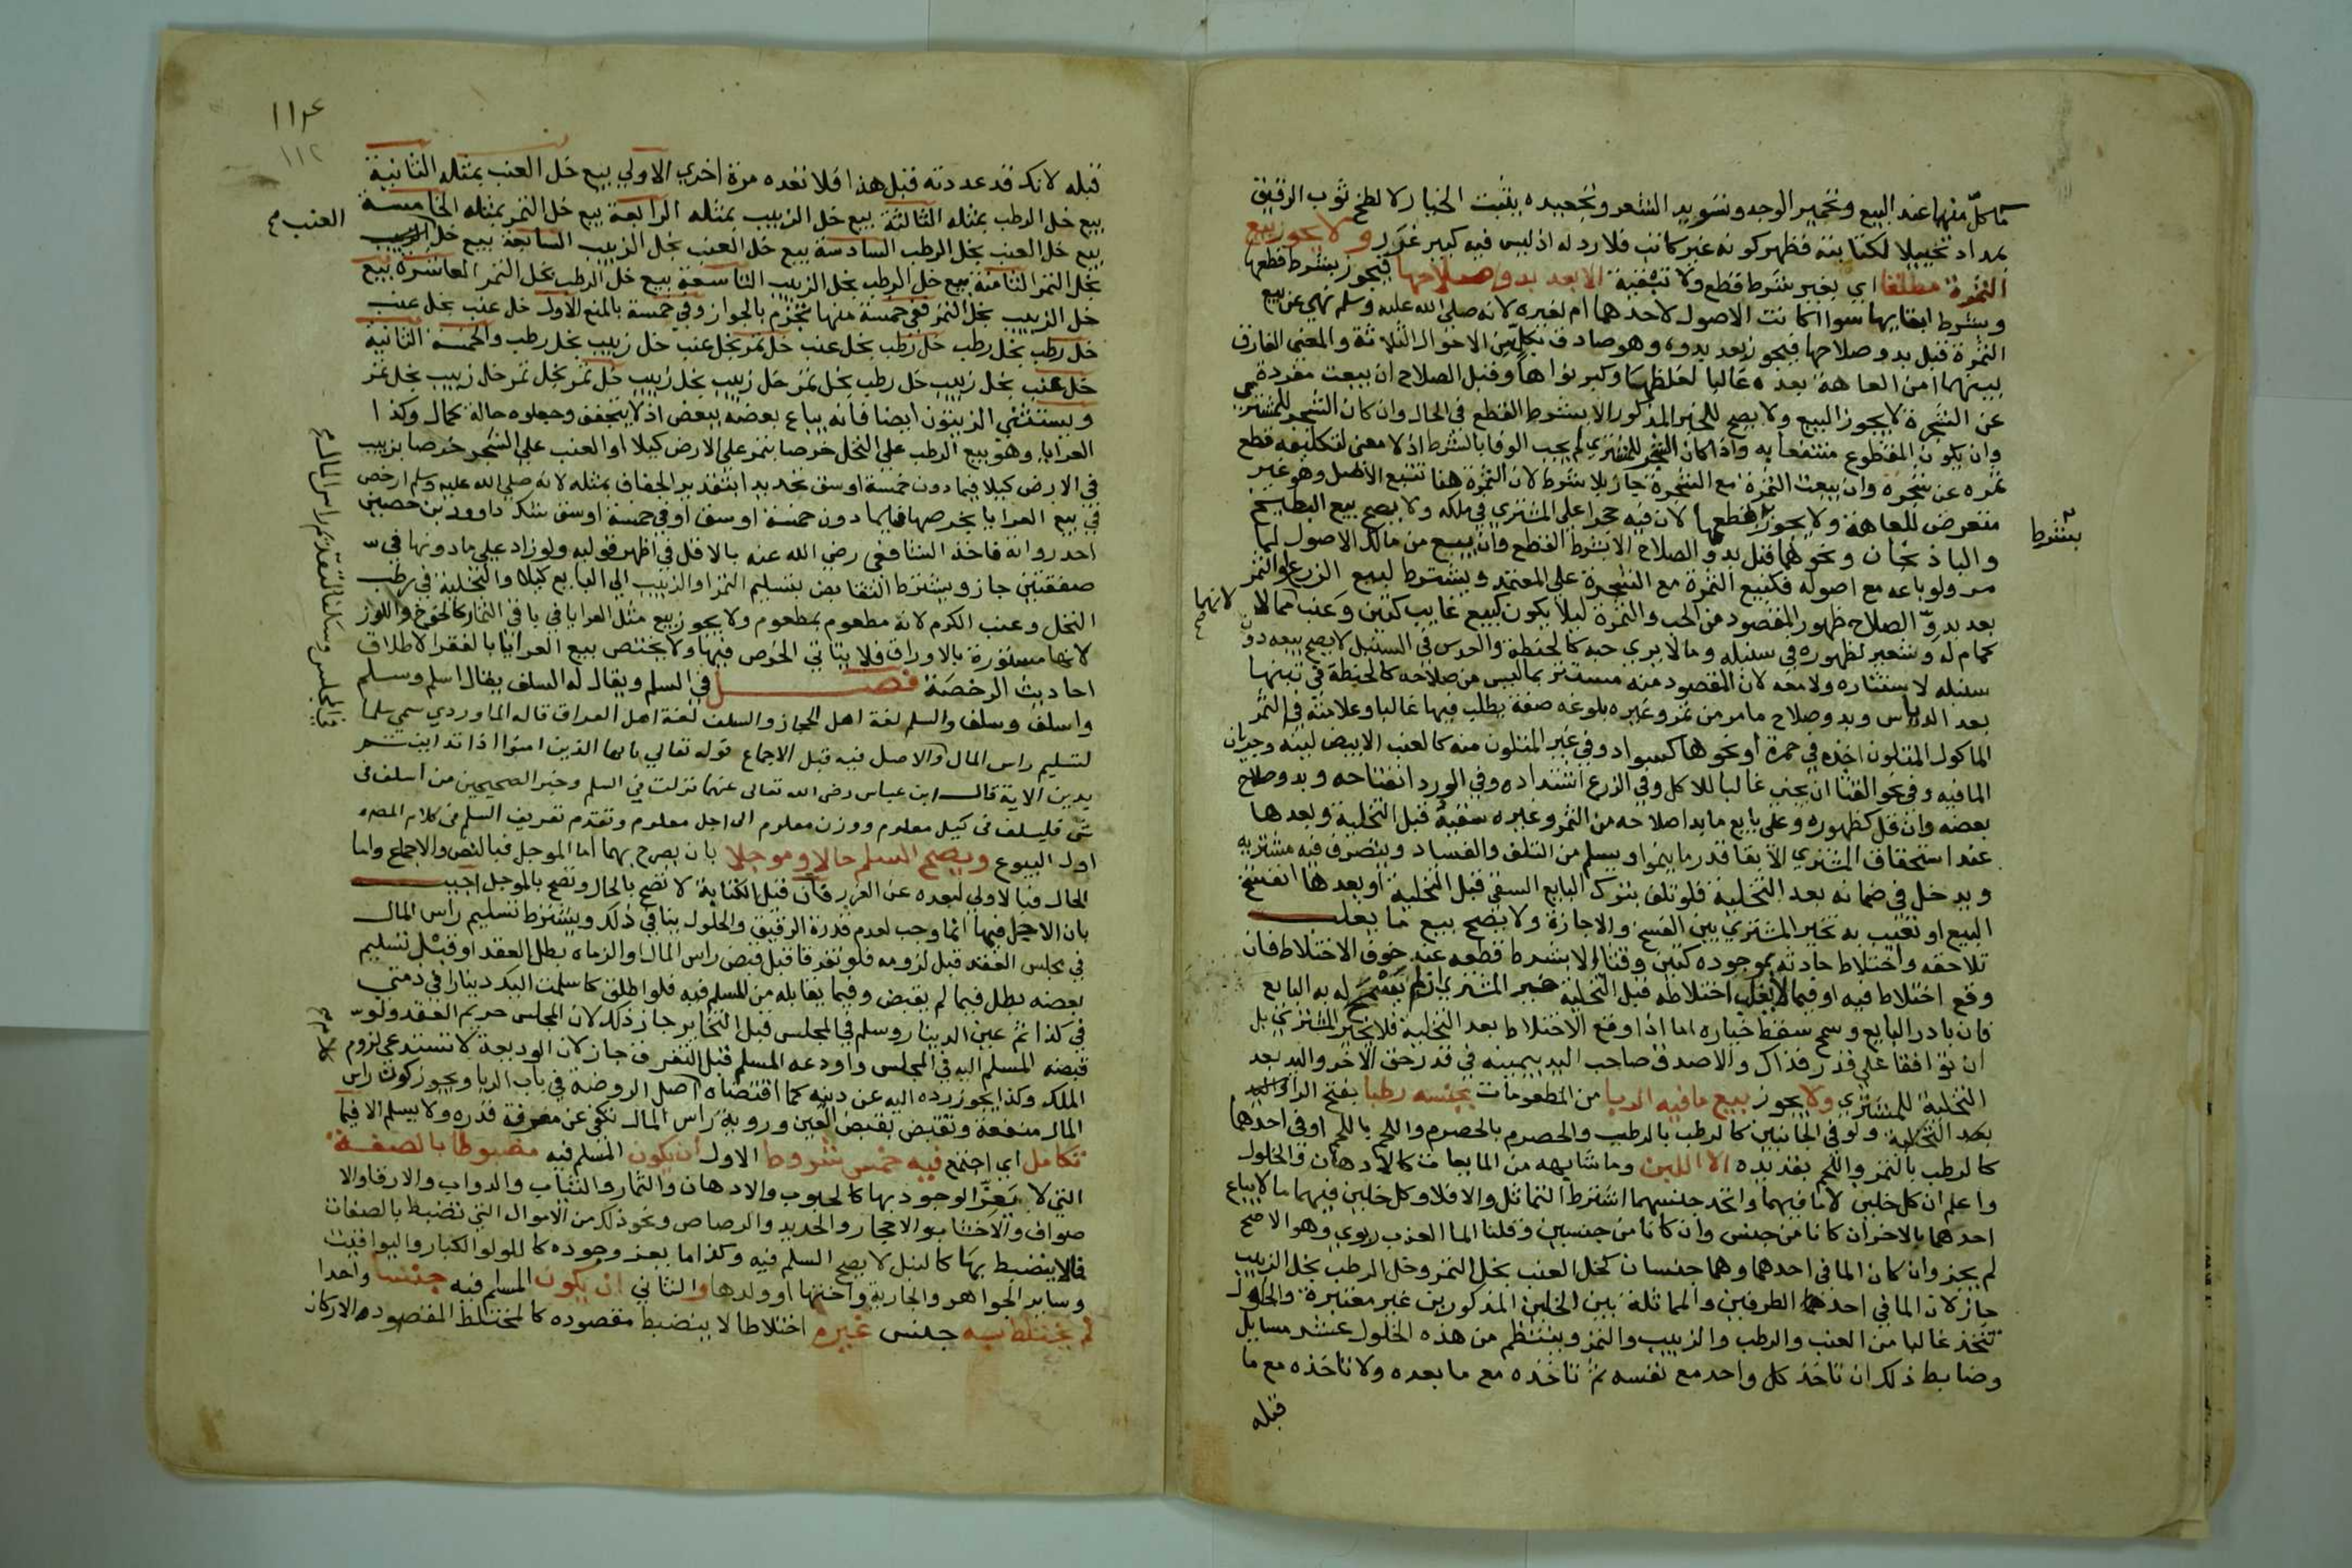 ما كلّ منهما عند البيع وتحمير الوجه وتسويد الشعر وتجعيده يثبت الخيار لا لطخ ثوب الرقيق
بمداد تخييلا لكتابته فظهر كونه غير كاتب فلا رد له اذ ليس فيه كبير غرر ولا يجوز بيع
الثمرة مطلقا اي بغير شرط قطع ولا تبقية الا بعد بدو صلاحها فيجوز بشرط قطعها
وبشرط ابقايها سوا اكانت الاصول لاحدهما ام لغيره لانه صلى الله عليه وسلم نهى عن بيع
الثمرة قبل بدو صلاحها فيجوز بعد بدوه وهو صادق بكلّ من الاحوال الثلاثة والمعنى الفارق
بينهما امن العاهة بعده غالبا لغلظها وكبر نواها وقبل الصلاح ان بيعت مفردة
عن الشجرة لا يجوز البيع ولا يصح للخبر المذكور الا بشرط القطع في الحال وان كان الشجر للمشتري
وان يكون المقطوع منتفعا به واذا كان الشجر للمشتري لم يجب الوفا بالشرط اذ لا معنى لتكليفه قطع
ثمره عن شجره وان بيعت الثمرة مع الشجرة جاز بلا شرط لان الثمرة هنا تتبع الاصل وهو غير
متعرض للعاهة ولا يجوز بقطعها لان فيه حجرا على المشتري في ملكه ولا يصح بيع البطيخ
بشرط
والباذنجان ونحوهما قبل بدو الصلاح الا بشرط القطع وان بيع من مالك الاصول لما
مر ولو باعه مع اصوله فكبيع الثمرة مع الشجرة على المعتمد ويشترط لبيع الزرع والثمر
بعد بدوّ الصلاح ظهور المقصود من الحب والثمرة ليلا يكون كبيع غايب كتين وعنب مما لا
كمام له وشعير لظهوره في سنبله وما لا يرى حبه كالحنطة والعدس في السنبل لا يصح بيعه دون
سنبله لاستتاره ولا معه لان المقصود منه مستتر بما ليس من صلاحه كالحنطة في تبنها
بعد الدياس وبدو صلاح ما مر من ثمر وغيره بلوغه صفة يطلب فيها غالبا وعلامته في الثمر
الماكول المتلون اخذه في حمرة او نحوها كسواد وفي غير المتلون منه كالعنب الابيض لينه وجريان
الما فيه وفي نحو القثا ان يجنى غالبا للاكل وفي الزرع اشتداده وفي الورد انفتاحه وبدو صلاح
بعضه وان قل كظهوره وعلى بايع ما بدا صلاحه من الثمر وغيره سقيه قبل التخلية وبعدها
عند استحقاق المشتري الابقا قدر ما ينموا ويسلم من التلف والفساد ويتصرف فيه مشتريه
ويدخل في ضمانه بعد التخلية فلو تلف بترك البايع السقي قبل التخلية او بعدها انفسخ
البيع او تعيب به تخير المشتري بين الفسخ والاجازة ولا يصح بيع ما يغلب
تلاحقه واختلاط حادثه بموجوده كتين وقثا الا بشرط قطعه عند خوف الاختلاط فان
وقع اختلاط فيه او فيما لا يغلب اختلاطه قبل التخلية خير المشتري ان لم يسمح له به البايع
فان بادر البايع وسمح سقط خياره اما اذا وقع الاختلاط بعد التخلية فلا يخير المشتري بل
ان توافقا على قدر فذاك والا صدق صاحب اليد بيمينه في قدر حق الاخر واليد بعد
التخلية للمشتري ولا يجوز بيع ما فيه الربا من المطعومات بجنسه رطبا بفتح الراء واليد
بعد التخلية ولو في الجانبين كالرطب بالرطب والحصرم بالحصرم واللحم باللحم او في احدهما
كالرطب بالتمر واللحم بقديده الا اللبن وما شابهه من المايعات كالادهان والخلول
واعلم ان كل خلين لا ما فيهما واتحد جنسهما اشترط التماثل والا فلا وكل خلين فيهما ما لا يباع
احدهما بالاخر ان كانا من جنس وان كانا من جنسين وقلنا الما العذب ربوي وهو الاصح
لم يجز وان كان الما في احدهما وهما جنسان كخل العنب بخل التمر وخل الرطب بخل الزبيب
جاز لان الما في احد الطرفين والمماثلة بين الخلين المذكورين غير معتبرة والخلول
تتخذ غالبا من العنب والرطب والزبيب والتمر وينتظم من هذه الخلول عشر مسايل
وضابط ذلك ان تاخذ كل واحد مع نفسه ثم تاخذه مع ما بعده ولا تاخذه مع ما
قبله
١١٤
١١٢
قبله لانك قد عددته قبل هذا فلا تعده مرة اخرى الاولى بيع خل العنب بمثله الثانية
بيع خل الرطب بمثله الثالثة بيع خل الزبيب بمثله الرابعة بيع خل التمر بمثله الخامسة
العنب
بيع خل العنب بخل الرطب السادسة بيع خل العنب بخل الزبيب السابعة بيع خل
بخل التمر الثامنة بيع خل الرطب بخل الزبيب التاسعة بيع خل الرطب بخل التمر العاشرة بيع
خل الزبيب بخل التمر ففي خمسة منها تجزم بالجواز وفي خمسة بالمنع الاولى خل عنب بخل عنب
خل رطب بخل رطب خل رطب بخل عنب خل تمر بخل عنب خل زبيب بخل رطب والخمسة الثانية
خل عنب بخل زبيب خل رطب بخل تمر خل زبيب بخل زبيب خل تمر بخل تمر خل زبيب بخل تمر
ويستثنى الزيتون ايضا فانه يباع بعضه ببعض اذ لا يتجفف وجعلوه حالة كمال وكذا
العرايا وهو بيع الرطب على النخل خرصا بتمر على الارض كيلا او العنب على الشجر خرصا بزبيب
في الارض كيلا فيما دون خمسة اوسق تحديدا بتقدير الجفاف بمثله لانه صلى الله عليه وسلم ارخص
في بيع العرايا بخرصها فيما دون خمسة اوسق او في خمسة اوسق شك داوود بن حصين
احد رواته فاخذ الشافعي رضي الله عنه بالاقل في اظهر قوليه ولو زاد على ما دونها في
صفقتين جاز ويشترط التقابض بتسليم التمر او الزبيب الى البايع كيلا والتخلية في رطب
النخل وعنب الكرم لانه مطعوم بمطعوم ولا يجوز بيع مثل العرايا في باقي الثمار كالخوخ واللوز
لانها مستورة بالاوراق فلا يتاتى الخرص فيها ولا يختص بيع العرايا بالفقرا لاطلاق
احاديث الرخصة فصل في السلم ويقال له السلف يقال اسلم وسلم
واسلف وسلف والسلم لغة اهل الحجاز والسلف لغة اهل العراق قاله الماوردي سمي سلما
لتسليم راس المال والاصل فيه قبل الاجماع قوله تعالى يا ايها الذين امنوا اذا تداينتم
بدين الاية قال ابن عباس رضى الله تعالى عنهما نزلت في السلم وخبر الصحيحين من اسلف فى
شى فليسلف فى كيل معلوم ووزن معلوم الى اجل معلوم وتقدم تعريف السلم فى كلام المص
اول البيوع ويصح السلم حالا وموجلا بان يصرح بهما اما الموجل فبالنص والاجماع واما
الحال فبالاولى لبعده عن الغرر فان قيل الكتابة لا تصح بالحال وتصح بالموجل اجيب
بان الاجل فيها انما وجب لعدم قدرة الرقيق والحلول ينافي ذلك ويشترط تسليم راس المال
في مجلس العقد قبل لزومه فلو تفرقا قبل قبض راس المال او الزماه بطل العقد او قبل تسليم
بعضه بطل فيما لم يقبض وفيما يقابله من المسلم فيه فلو اطلق كاسلمت اليك دينارا في ذمتي
في كذا ثم عين الدينار وسلم في المجلس قبل التخاير جاز ذلك لان المجلس حريم العقد ولو
قبضه المسلم اليه في المجلس واودعه المسلم قبل التفرق جاز لان الوديعة لا تستدعي لزوم
الملك وكذا يجوز رده اليه عن دينه كما اقتضاه اصل الروضة في باب الربا ويجوز كون راس
المال منفعة وتقبض بقبض العين وروية راس المال تكفي عن معرفة قدره ولا يسلم الا فيما
تكامل اي اجتمع فيه خمس شروط الاول ان يكون المسلم فيه مضبوطا بالصفة
التي لا يعزّ الوجود بها كالحبوب والادهان والثمار والثياب والدواب والارقا والا
صواف والاخشاب والاحجار والحديد والرصاص ونحو ذلك من الاموال التي تضبط بالصفات
فما لا ينضبط بها كالنبل لا يصح السلم فيه وكذا ما يعز وجوده كاللولو الكبار واليواقيت
وساير الجواهر والجارية واختها او ولدها والثاني ان يكون المسلم فيه جنسا واحدا
لم يختلط به جنس غيره اختلاطا لا ينضبط مقصوده كالمختلط المقصود الاركان